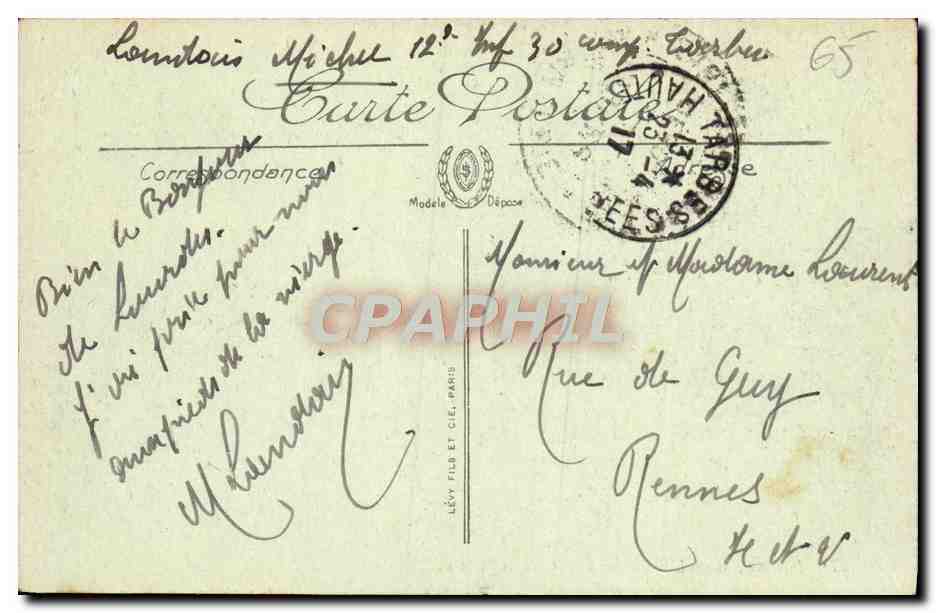 Landais Michel 12e Inf 30 comp. Tarbes
65
Carte Postale
Correspondance
Modèle Déposé
TARBES
HAUTES PYRENEES
13 *
23 -4
17
Bien le Bonjour
de Lourdes.
J'ai prié pour vous
aux pieds de la vierge.
M Landais
Monsieur et Madame Laurent
Rue de Guy
Rennes
I et V
LÉVY FILS ET CIE, PARIS
CPAPHIL